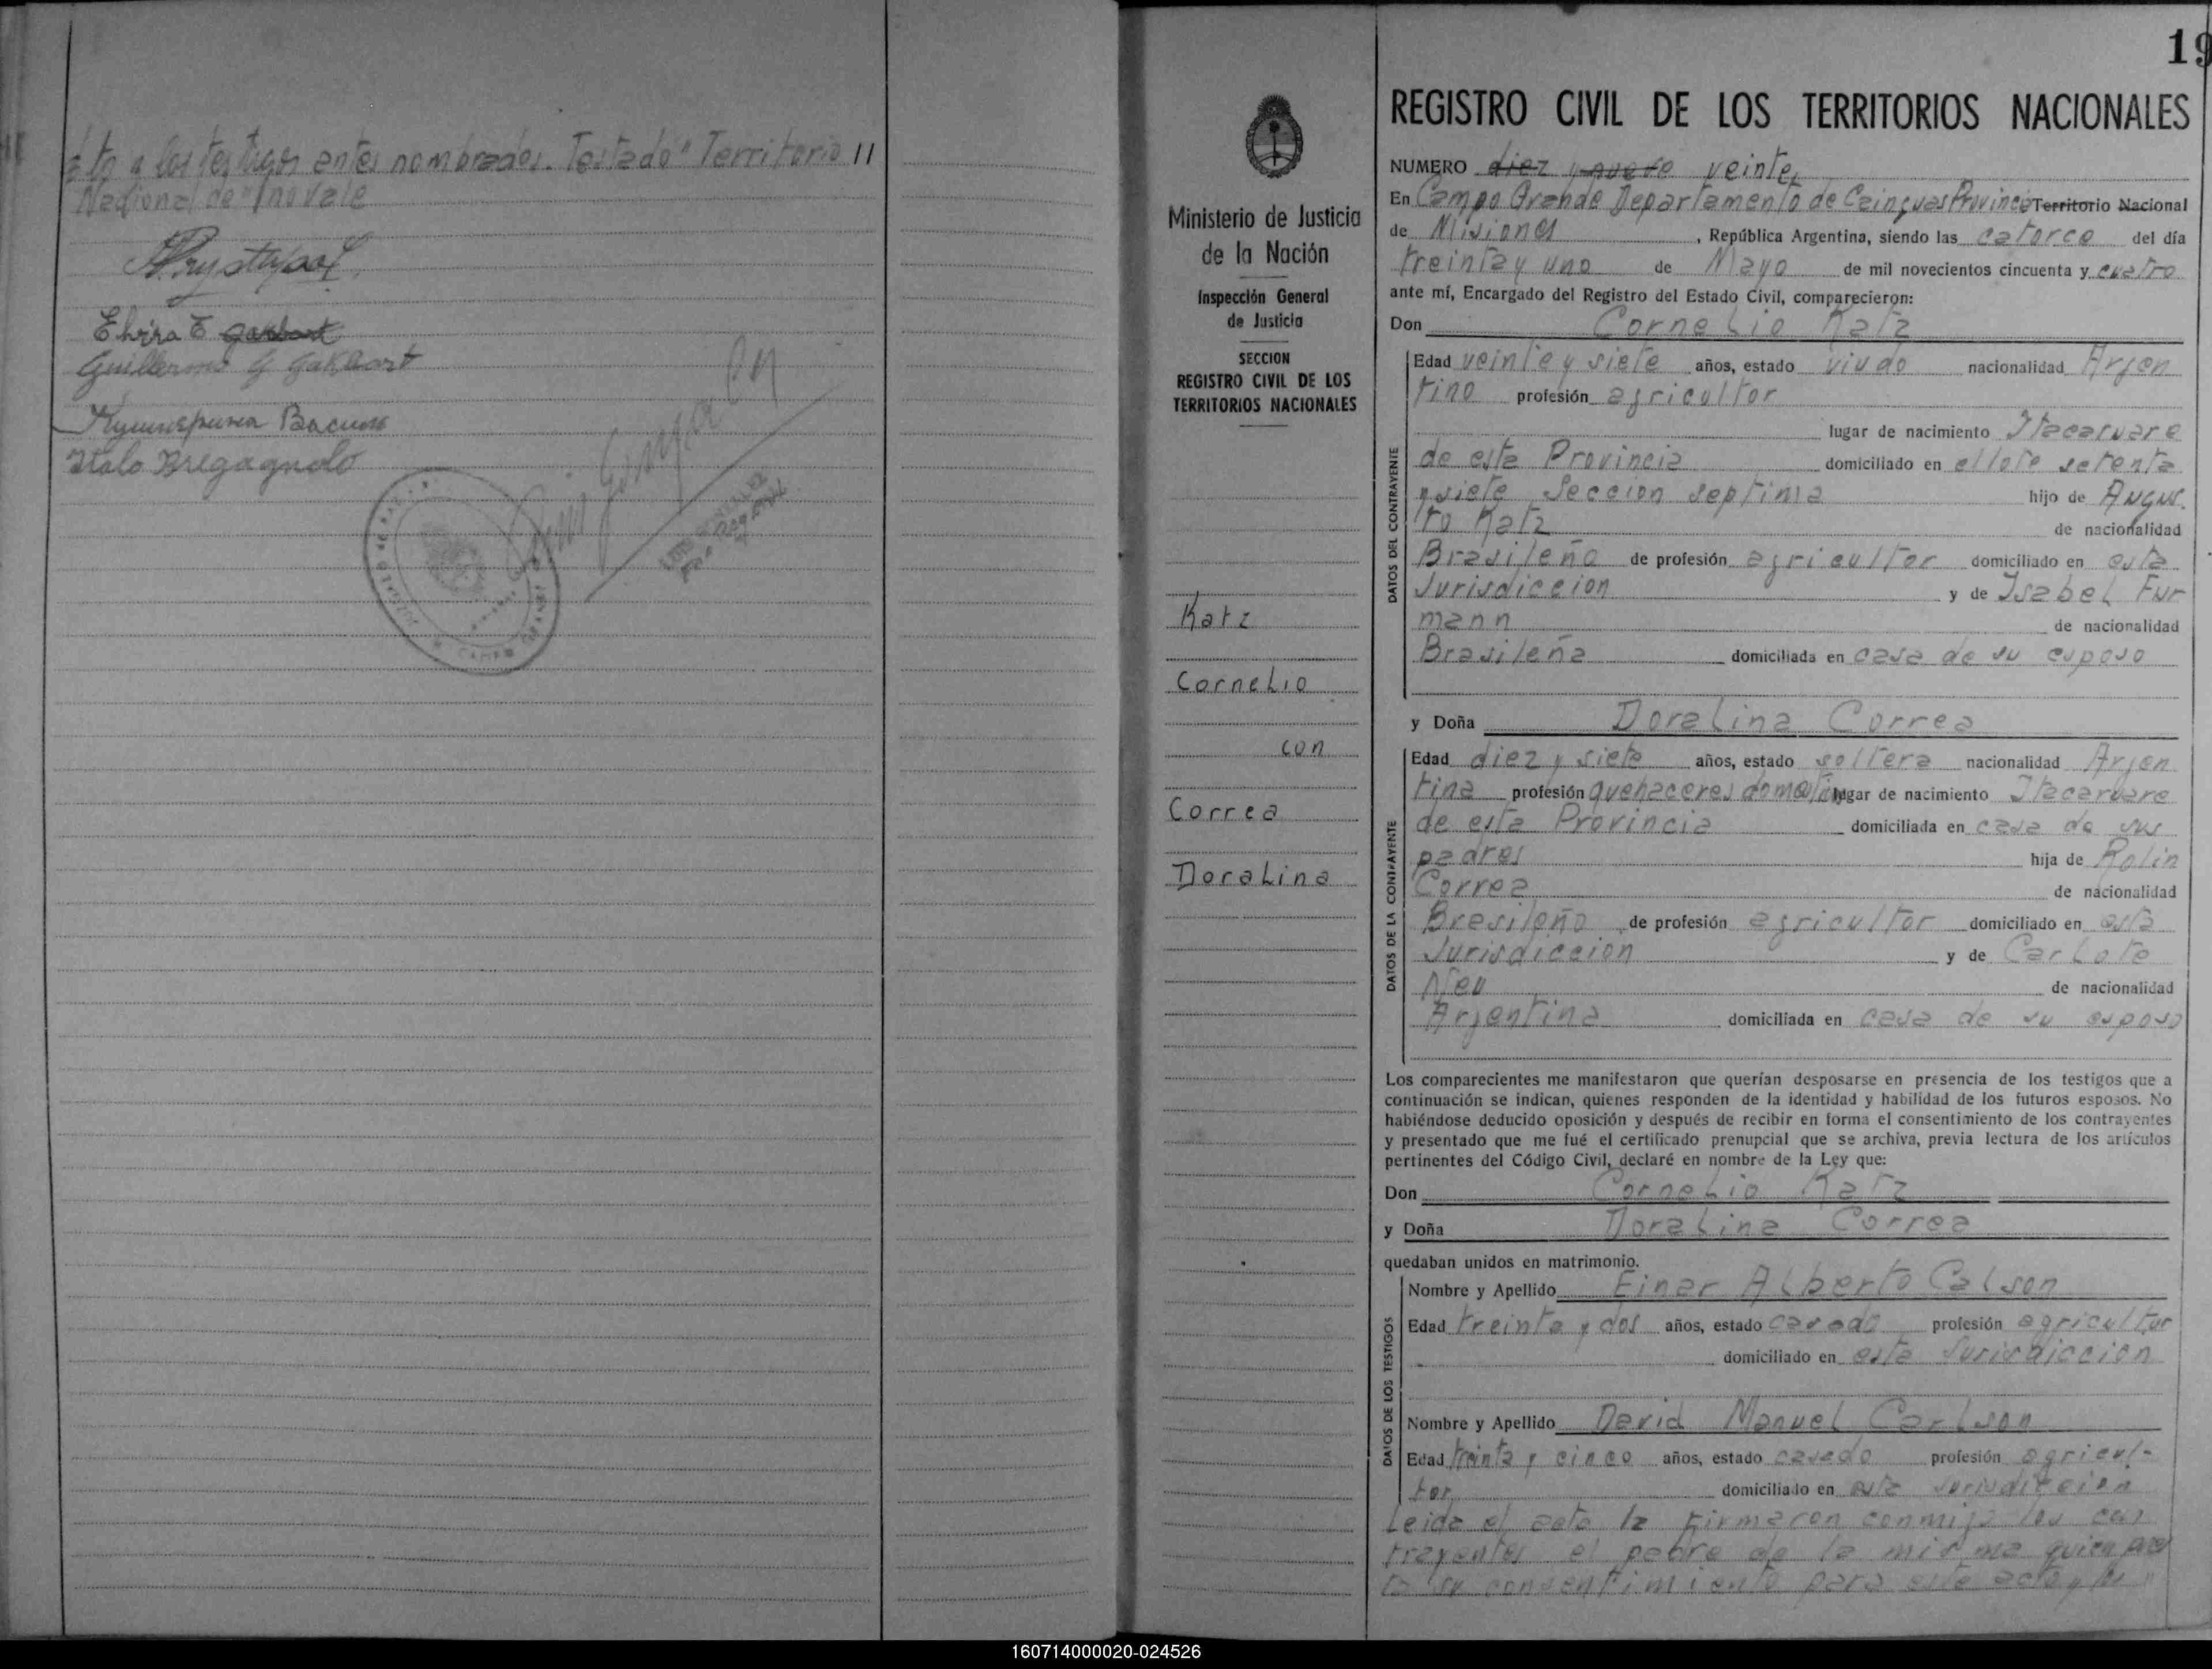 a los testigos antes nombrados. Testado "Territorio
Nacional de" no vale
Guillermo G
Italo Bregagnolo
Ministerio de Justicia
de la Nación
Inspección General
de Justicia
SECCION
REGISTRO CIVIL DE LOS
TERRITORIOS NACIONALES
Katz
Cornelio
con
Correa
Doralina
19
REGISTRO CIVIL DE LOS TERRITORIOS NACIONALES
NUMERO diez y nueve veinte
En Campo Grande Departamento de Cainguas Provincia Territorio Nacional
de Misiones, República Argentina, siendo las catorce del día
treinta y uno de Mayo de mil novecientos cincuenta y cuatro
ante mí, Encargado del Registro del Estado Civil, comparecieron:
Don Cornelio Katz
DATOS DEL CONTRAYENTE
Edad veinte y siete años, estado viudo nacionalidad Argen
tino profesión agricultor
lugar de nacimiento Itacaruare
de esta Provincia domiciliado en el lote setenta
y siete Seccion septima hijo de Augus
to Katz de nacionalidad
Brasileño de profesión agricultor domiciliado en esta
Jurisdiccion y de Isabel Fur
mann de nacionalidad
Brasileña domiciliada en casa de su esposo
y Doña Doralina Correa
DATOS DE LA CONTRAYENTE
Edad diez y siete años, estado soltera nacionalidad Argen
tina profesión quehaceres domesticos lugar de nacimiento Itacaruare
de esta Provincia domiciliada en casa de sus
padres hija de Rolin
Correa de nacionalidad
Brasileño de profesión agricultor domiciliado en esta
Jurisdiccion y de Carlota
Neu de nacionalidad
Argentina domiciliada en casa de su esposo
Los comparecientes me manifestaron que querían desposarse en presencia de los testigos que a
continuación se indican, quienes responden de la identidad y habilidad de los futuros esposos. No
habiéndose deducido oposición y después de recibir en forma el consentimiento de los contrayentes
y presentado que me fué el certificado prenupcial que se archiva, previa lectura de los artículos
pertinentes del Código Civil, declaré en nombre de la Ley que:
Don Cornelio Katz
y Doña Doralina Correa
quedaban unidos en matrimonio.
DATOS DE LOS TESTIGOS
Nombre y Apellido Einar Alberto Calson
Edad treinta y dos años, estado casado profesión agricultor
domiciliado en esta Jurisdiccion
Nombre y Apellido David Manuel Carlson
Edad treinta y cinco años, estado casado profesión agricul-
tor domiciliado en esta Jurisdiccion
Leida el acta la firmaron conmigo los con
trayentes el padre de la misma quien pres
ta su consentimiento para este acto y los
160714000020-024526